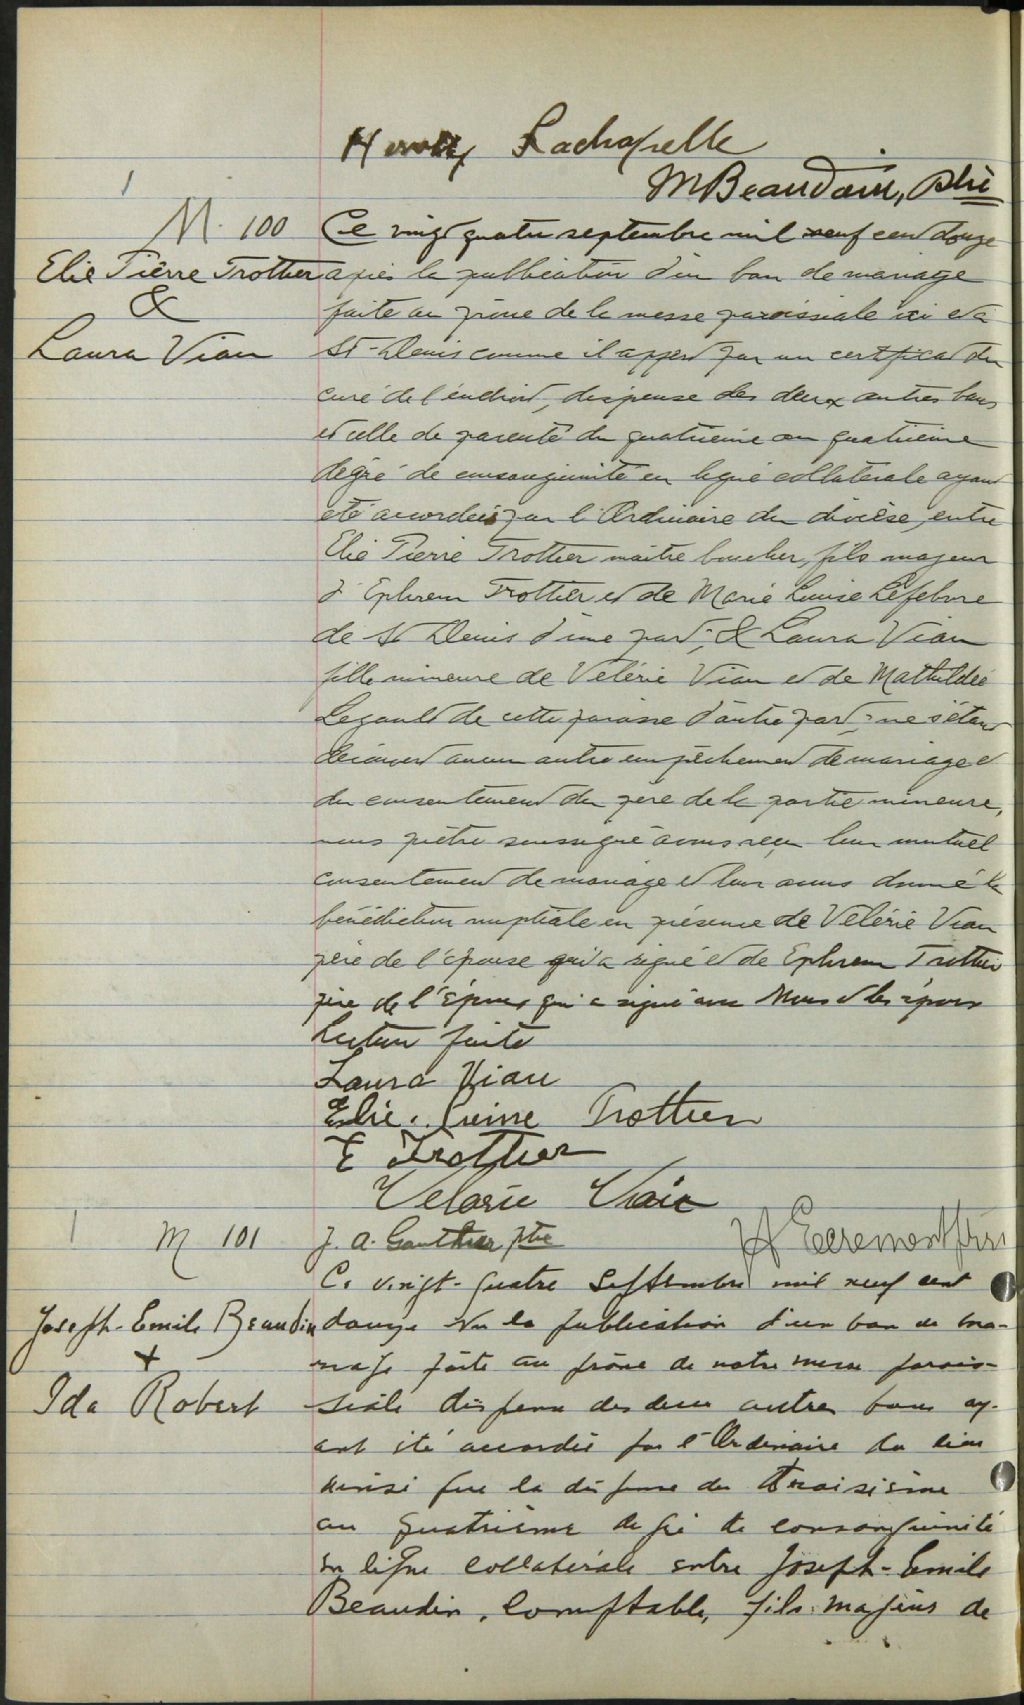 Lachapelle
M Beaudoin, ptre
M. 100
Elie Pierre Trottier
&
Laura Viau
Ce vingt quatre septembre mil neuf cent douze
après la publication d'un ban de mariage
faite au prône de la messe paroissiale ici et à
St-Denis comme il appert par un certificat du
curé de l'endroit, dispense des deux autres bans
et celle de parenté du quatrième au quatrième
dégré de consanguinité en ligne collatérale ayant
été accordées par l'Ordinaire du diocèse, entre
Elie Pierre Trottier maître boucher, fils majeur
d'Ephrem Trottier et de Marie Louise Lefebvre
de St Denis d'une part; & Laura Viau
fille mineure de Vélérie Viau et de Mathildée
Legault de cette paroisse d'autre part, ne s'étant
découvert aucun autre empêchement de mariage et
du consentement du père de la partie mineure,
nous prêtre soussigné avons reçu leur mutuel
consentement de mariage et leur avons donné la
bénédiction nuptiale en présence de Vélérie Viau
père de l'épouse qui a signé et de Ephrem Trottier
père de l'époux qui a signé avec Nous et les époux
Lecture faite
Laura Viau
Elie. Pierre Trottier
E Trottier
Velarie Viau
J. A. Gauthier ptre
M 101
Joseph-Emile Beaudin
+
Ida Robert
Ce vingt-quatre Septembre mil neuf cent
douze vu la publication d'un ban de ma-
riage faite au prône de notre messe parois-
siale dispense des deux autres bans ay-
ant été accordée par l'Ordinaire du lieu
ainsi que la dispense du troisième
au quatrième degré de consanguinité
en ligne collatérale entre Joseph-Emile
Beaudin, Comptable, fils majeur de